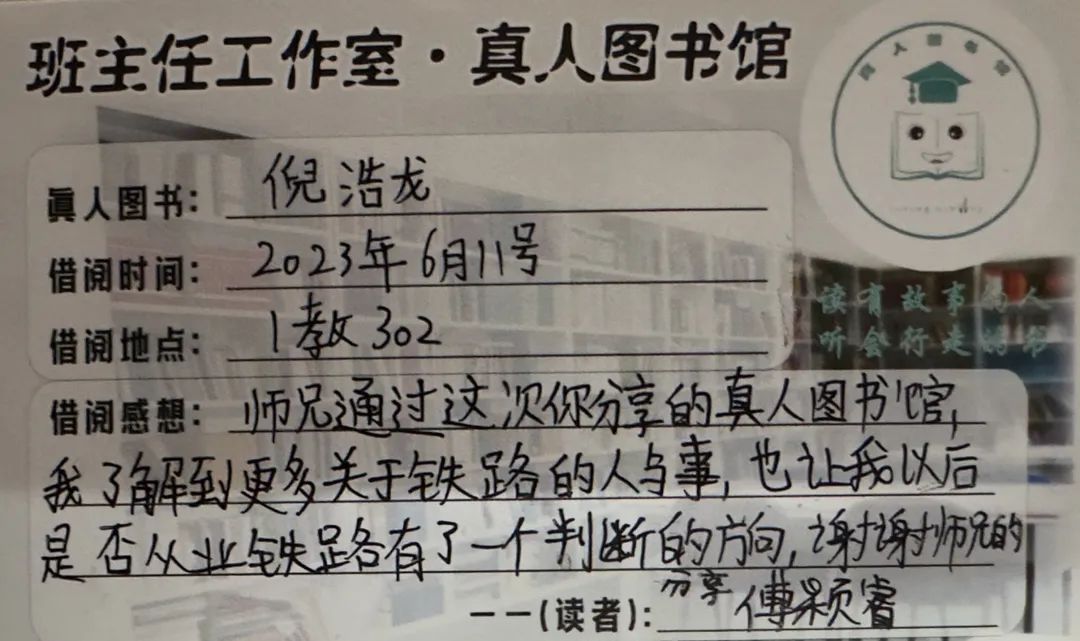 班主任工作室·真人图书馆
真人图书馆
真人图书：倪浩龙
借阅时间：2023年6月11号
借阅地点：1教302
读有故事的人
听会行走的书
借阅感想：师兄通过这次你分享的真人图书馆，
我了解到更多关于铁路的人与事，也让我以后
是否从业铁路有了一个判断的方向，谢谢师兄的
分享
——(读者)：傅颖睿